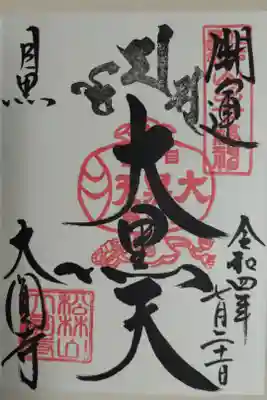 開運
令和四年
七月二十一日
大黒天
目黒
大圓寺
松林山
大圓寺